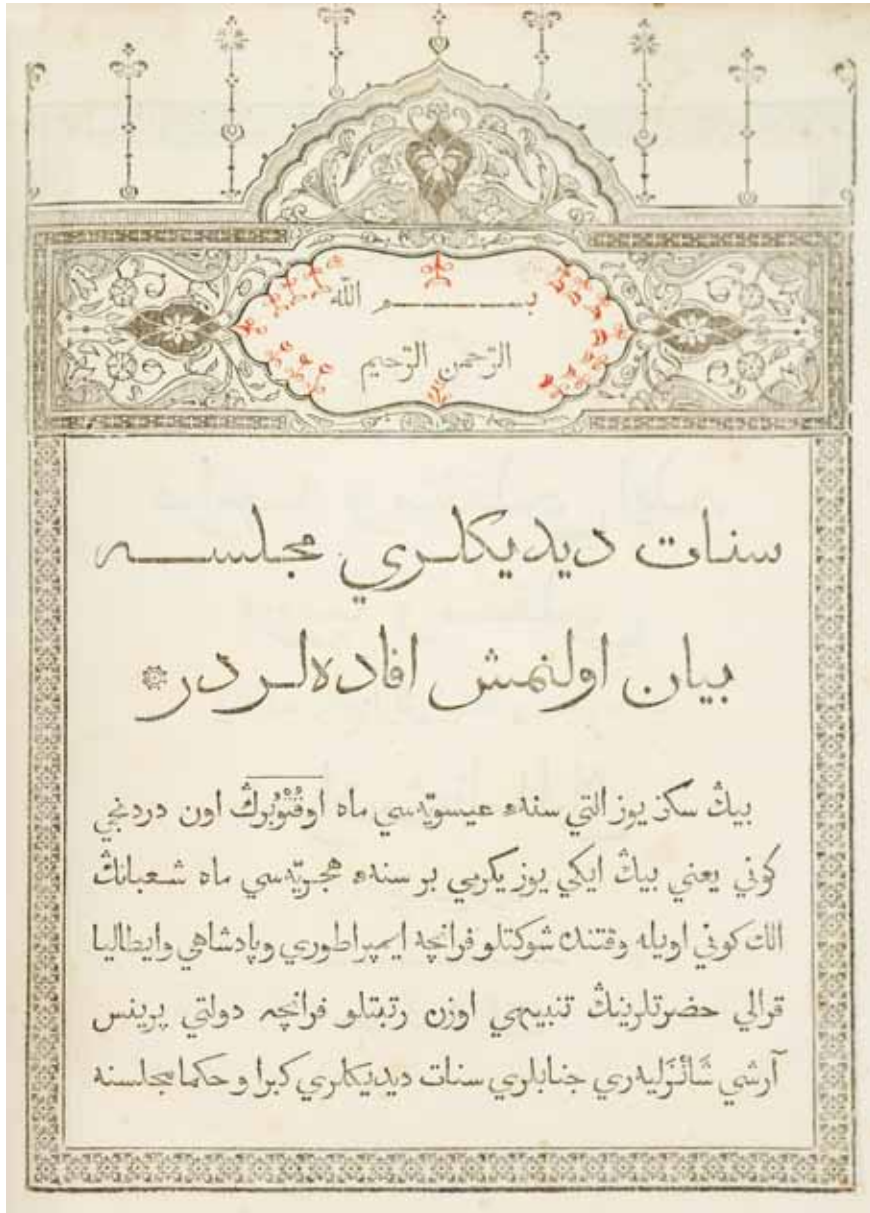 بـــــــــم الله
الرّحمن الرّحيم
سنات ديديكلري مجلســـه
بيان اولنمش افاده‌لردر
بيڭ سكز يوز التي سنهء عيسويّه‌سي ماه اوقْتُوْبُرڭ اون دردنجي
كوني يعني بيڭ ايكي يوز يكرمي بر سنهء هجريّه‌سي ماه شعبانڭ
الك كوني اويله وقتنده شوكتلو فرانچه ايمپراطوري وپادشاهي وايطاليا
قرالي حضرتلرينڭ تنبيهي اوزن رتبتلو فرانچه دولتي پرينس
آرشي شَانْزَليه‌ري جنابلري سنات ديديكلري كبرا و حكما مجلسنه